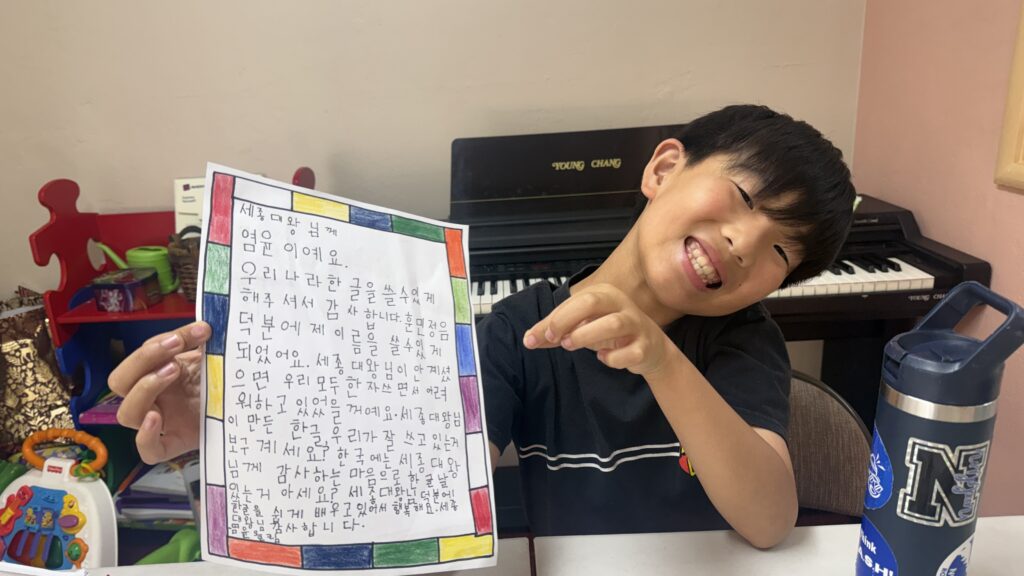 세종대왕님께
염윤이예요.
우리나라 한글을 쓸수있게
해주셔서 감사합니다. 훈민정음
덕분에 제 이름을 쓸수있게
되었어요. 세종대왕님이 안계셨
으면 우리모두 한자쓰면서 어려
워하고 있었을꺼예요. 세종대왕님
이 만든 한글, 우리가 잘 쓰고 있는거
보구 계세요? 한국에는 세종대왕
님께 감사하는 마음으로 한글날
있는거 아세요? 세종대왕님 덕분에
한글을 쉽게 배우고 있어서 행복해요. 세종
대왕님 감사합니다.
YOUNG CHANG
YOUNG CHANG
N
think